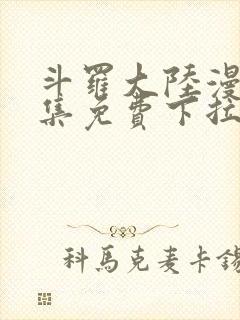 斗羅大陸漫
集免費下拉
科馬克麦卡錫